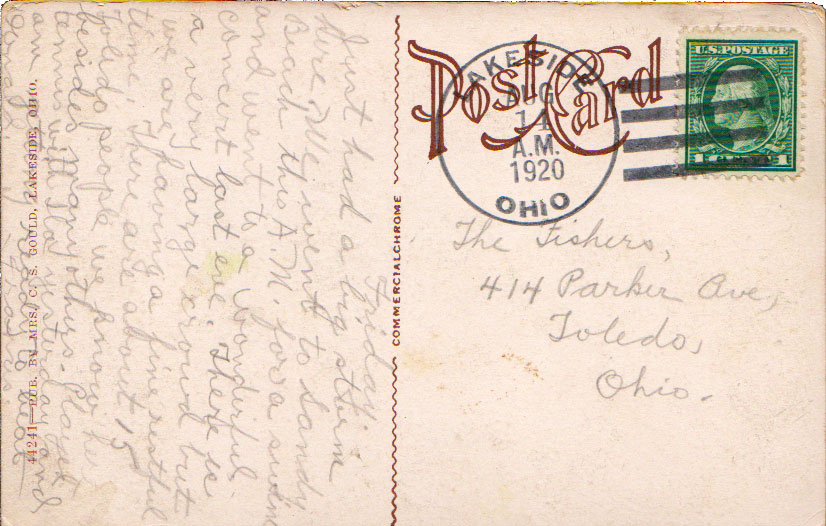 Friday.
Just had a big storm
here. We went to Sandy
Beach this A.M. for a swim
and to a wonderful
concert last eve. There is
a very large crowd but
we are having a fine restful
time. There are about 15
Toledo people we know here
besides many others. Played
tennis yesterday and
am ready to
44241—PUB. BY MRS. C. S. GOULD, LAKESIDE, OHIO.
COMMERCIALCHROME
Post Card
LAKESIDE
AUG
14
A.M.
1920
OHIO
U.S. POSTAGE
1 CENT 1
The Fishers,
414 Parker Ave,
Toledo,
Ohio.